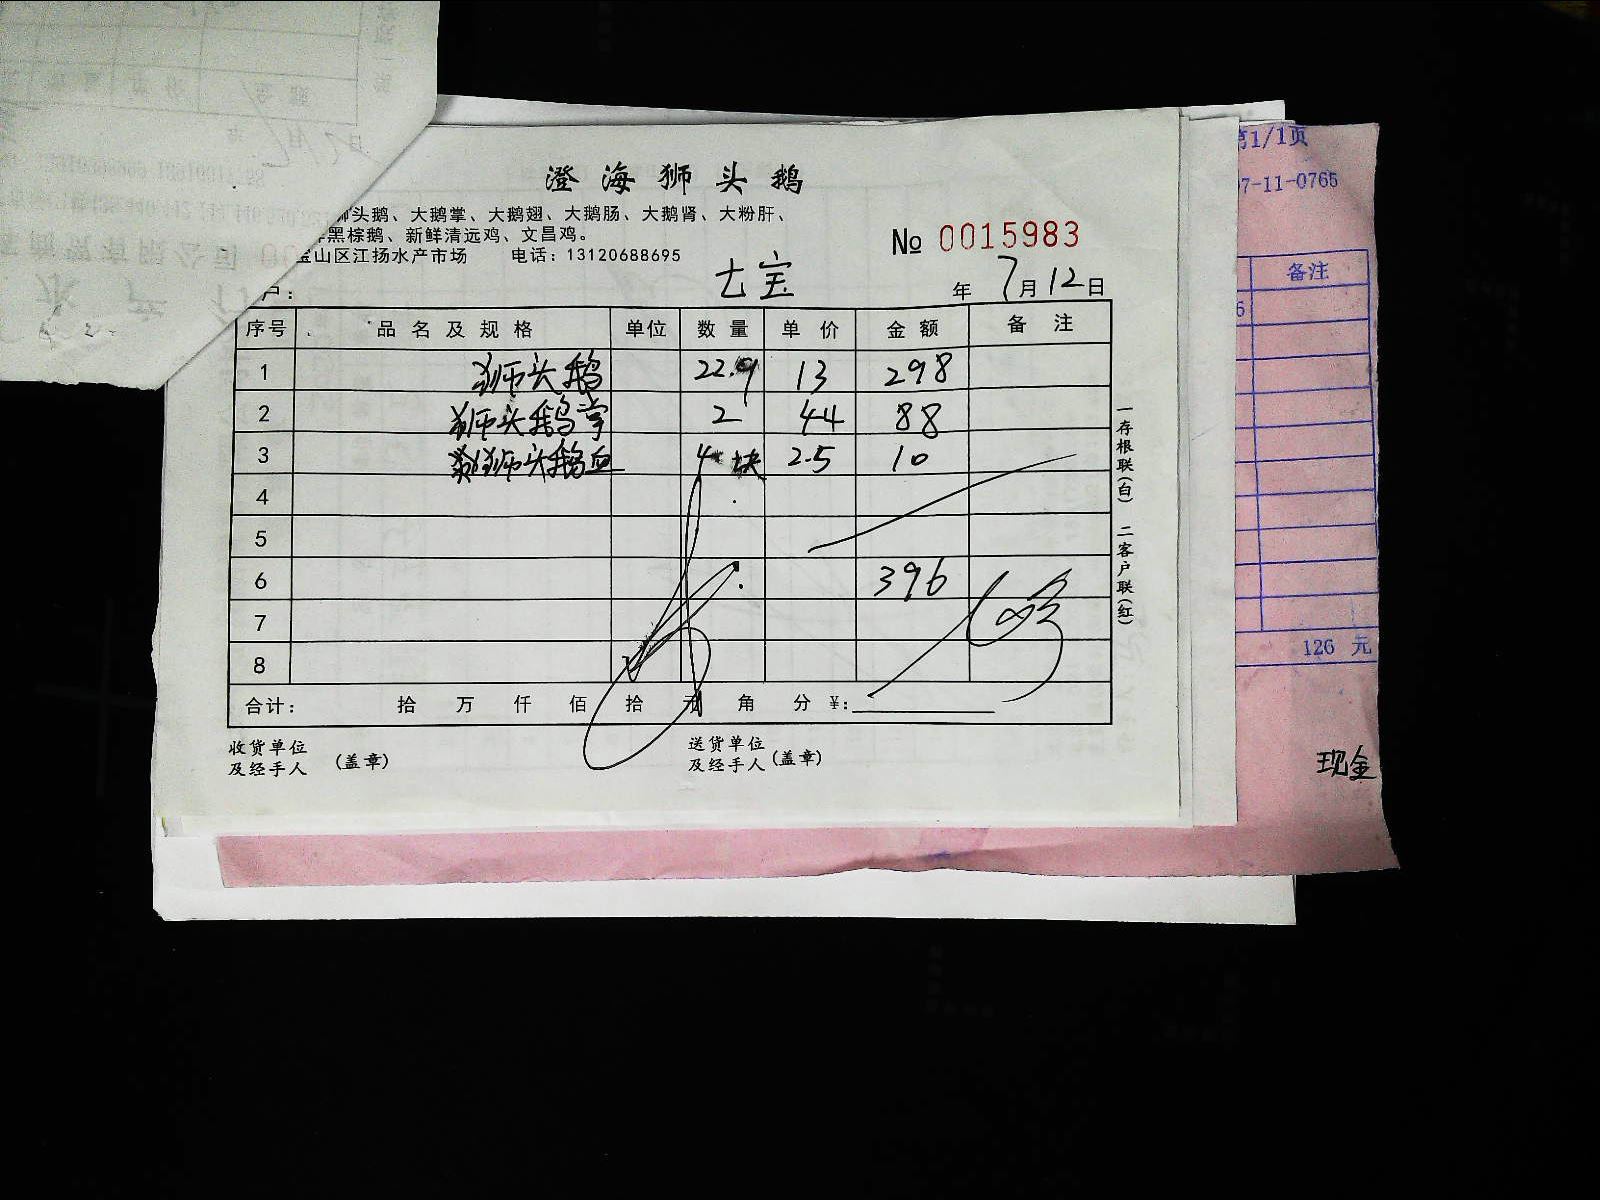 澄海狮头鹅
狮头鹅、大鹅掌、大鹅翅、大鹅肠、大鹅肾、大粉肝、
黑棕鹅、新鲜清远鸡、文昌鸡。
宝山区江扬水产市场 电话:13120688695
№ 0015983
户: 七宝 年 7月12日
序号 品名及规格 单位 数量 单价 金额 备注
1 狮头鹅 22.9 13 298
2 狮头鹅掌 2 44 88
3 狮头鹅血 4块 2.5 10
4
5
6 396
7
8
合计: 拾 万 仟 佰 拾 元 角 分 ¥:
收货单位
及经手人 (盖章)
送货单位
及经手人 (盖章)
一存根联(白) 二客户联(红)
第1/1页
7-11-0765
备注
6
126 元
现金